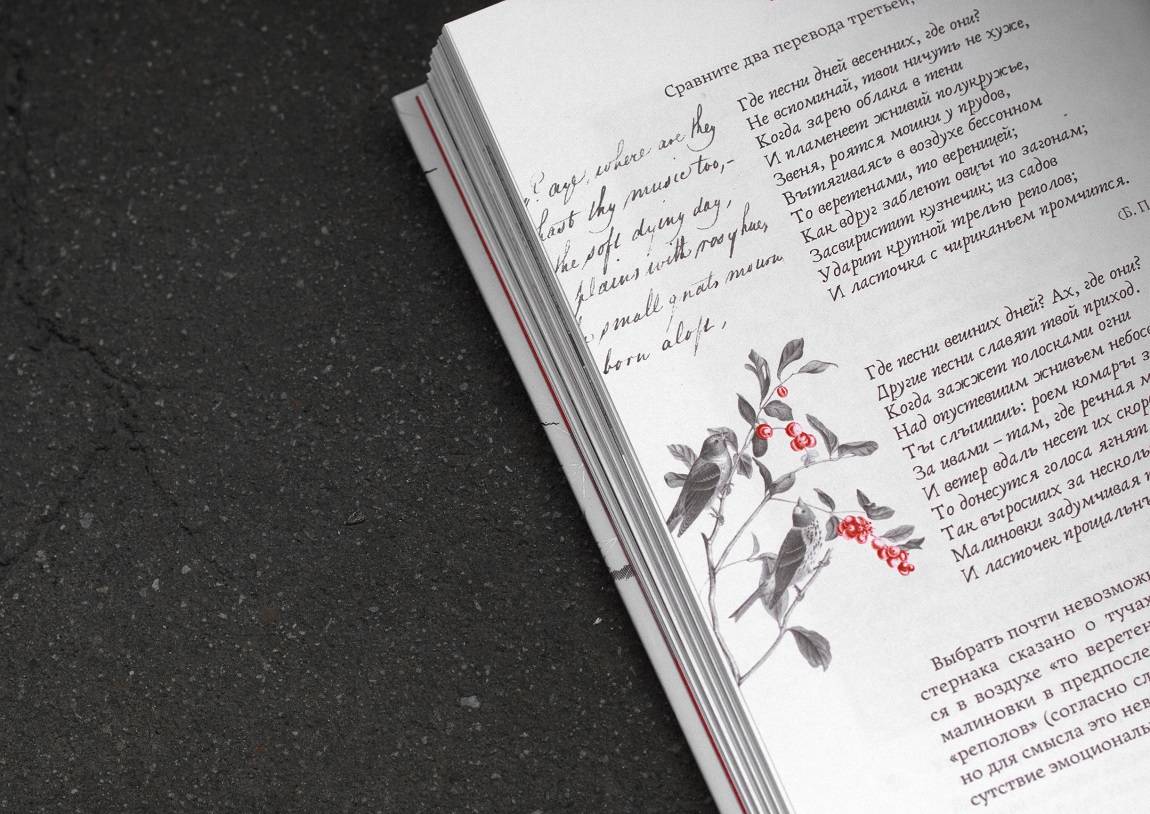 Сравните два перевода третьей,
? aye, where are they
hast thy music too,-
the soft dying day,
plains with rosy hue,
small gnats mourn
born aloft,
Где песни дней весенних, где они?
Не вспоминай, твои ничуть не хуже,
Когда зарею облака в тени
И пламенеет жнивий полукружье,
Звеня, роятся мошки у прудов,
Вытягиваясь в воздухе бессонном
То веретенами, то вереницей;
Как вдруг заблеют овцы по загонам;
Засвиристит кузнечик; из садов
Ударит крупной трелью реполов;
И ласточка с чириканьем промчится.
(Б. П
Где песни вешних дней? Ах, где они?
Другие песни славят твой приход.
Когда зажжет полосками огни
Над опустевшим жнивьем небос
Ты слышишь: роем комары з
За ивами – там, где речная м
И ветер вдаль несет их скор
То донесутся голоса ягнят
Так выросших за несколь
Малиновки задумчивая т
И ласточек прощальн
Выбрать почти невозможн
стернака сказано о тучах
ся в воздухе «то веретен
малиновки в предпосле
«реполов» (согласно сл
но для смысла это нев
сутствие эмоциональ